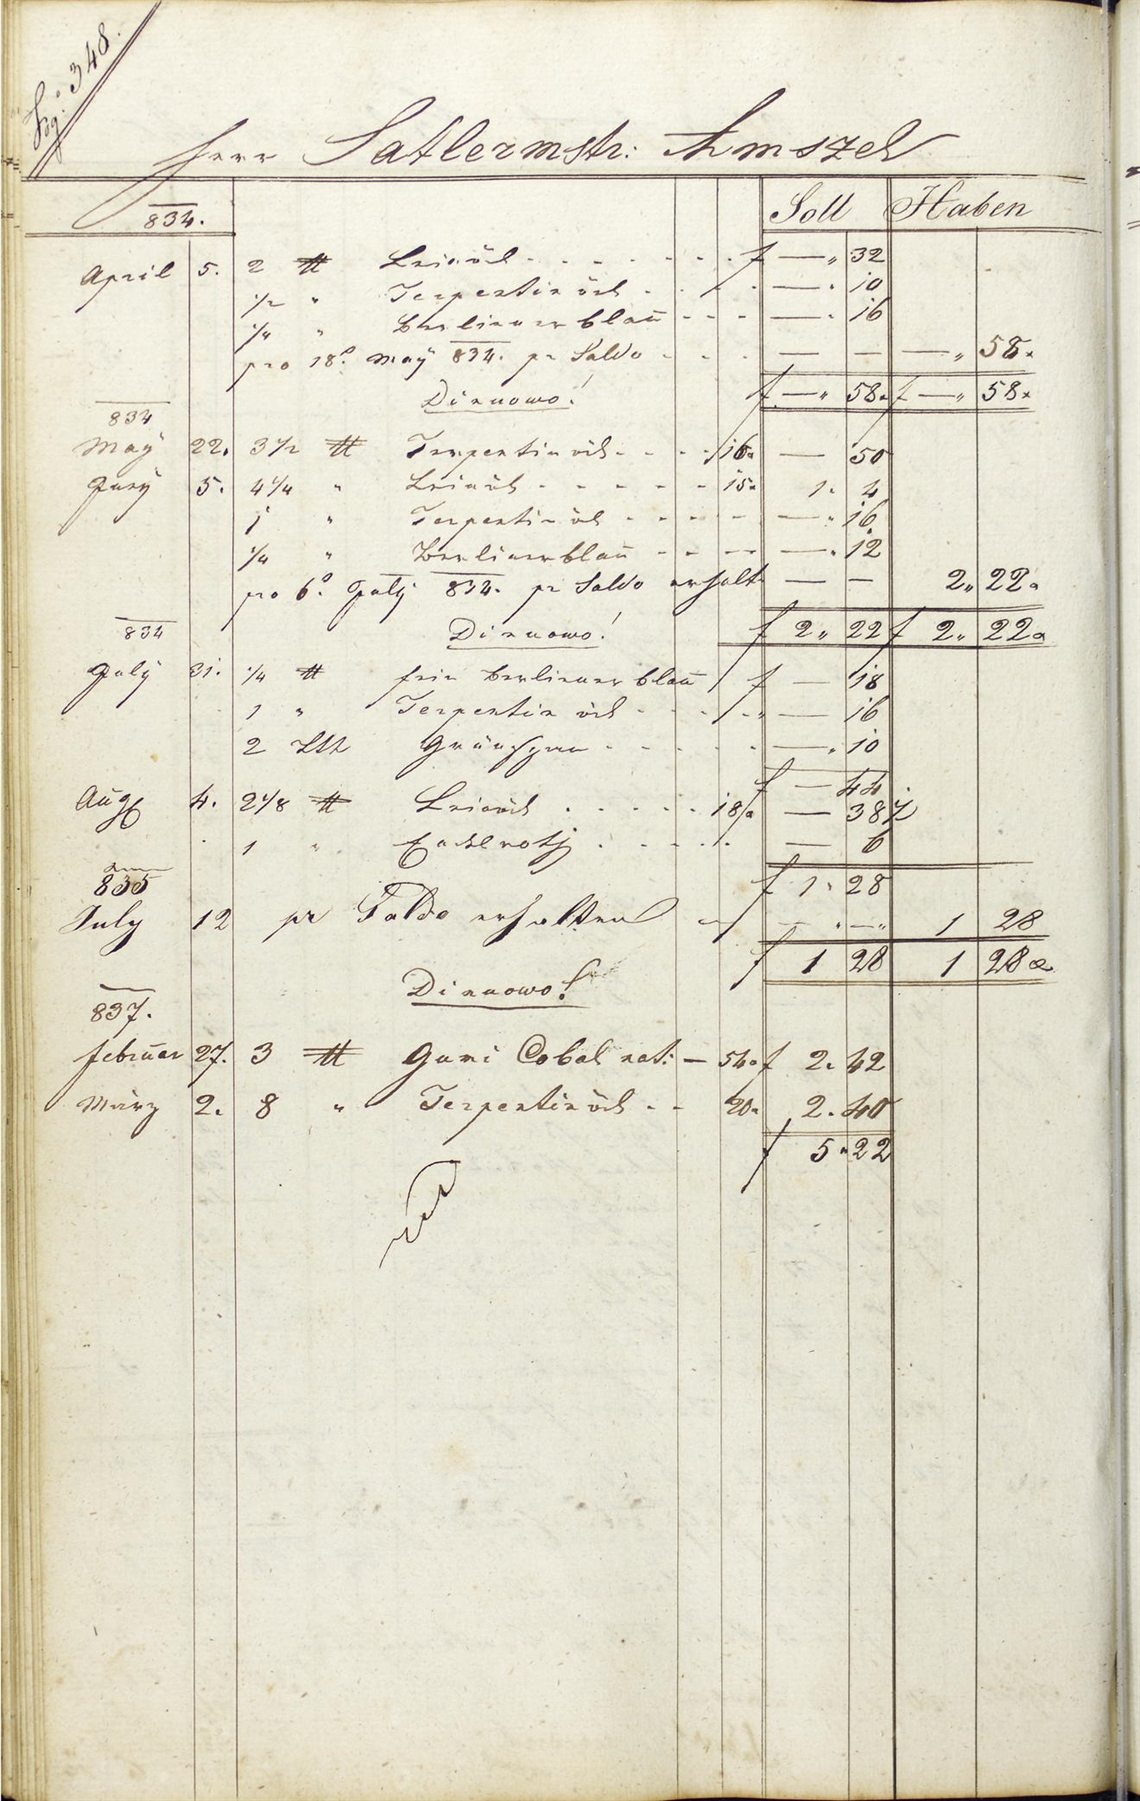 348.
Herr Satlermstr: Amszel
834. Soll Haben
April 5. 2 ℔ Leinöl - - - - - - - f — " 32
1/2 " Terpentin öel - - - — " 10
1/4 " Berlinerblau - - - — " 16
pro 18º May 834. pr Saldo - - - — — — " 58 "
Dinuovo! f — " 58 " f — " 58 "
834
May 22. 3 1/2 ℔ Terpentinöel - - - - 16 " — 50
Juny 5. 4 1/4 " Leinöl - - - - - 15 " 1 " 4
1 " Terpentinöel - - - - — " 16
1/4 " Berlinerblau - - - - — " 12
pro 6º July 834. pr Saldo erhalt — — 2 " 22 "
834 Dinuovo! f 2 " 22 f 2 " 22 "
July 31. 1/4 ℔ fein Berlinerblau f — 18
1 " Terpentin öel - - - - — 16
2 Lth Grünspan - - - - - — " 10
f — 44
Aug 4. 2 1/8 ℔ Leinöel - - - - - 18 " — 38
1 " - - - - - — 6
835 f 1 " 28
July 12 pr Saldo erhalten — " — " 1 28
f 1 28 1 28
Dinuovo!
837.
Februar 27. 3 ℔ Cobal — 54 " f 2 " 42
März 2. 8 " Terpentinöel - - 20 " 2 " 40
f 5 " 22